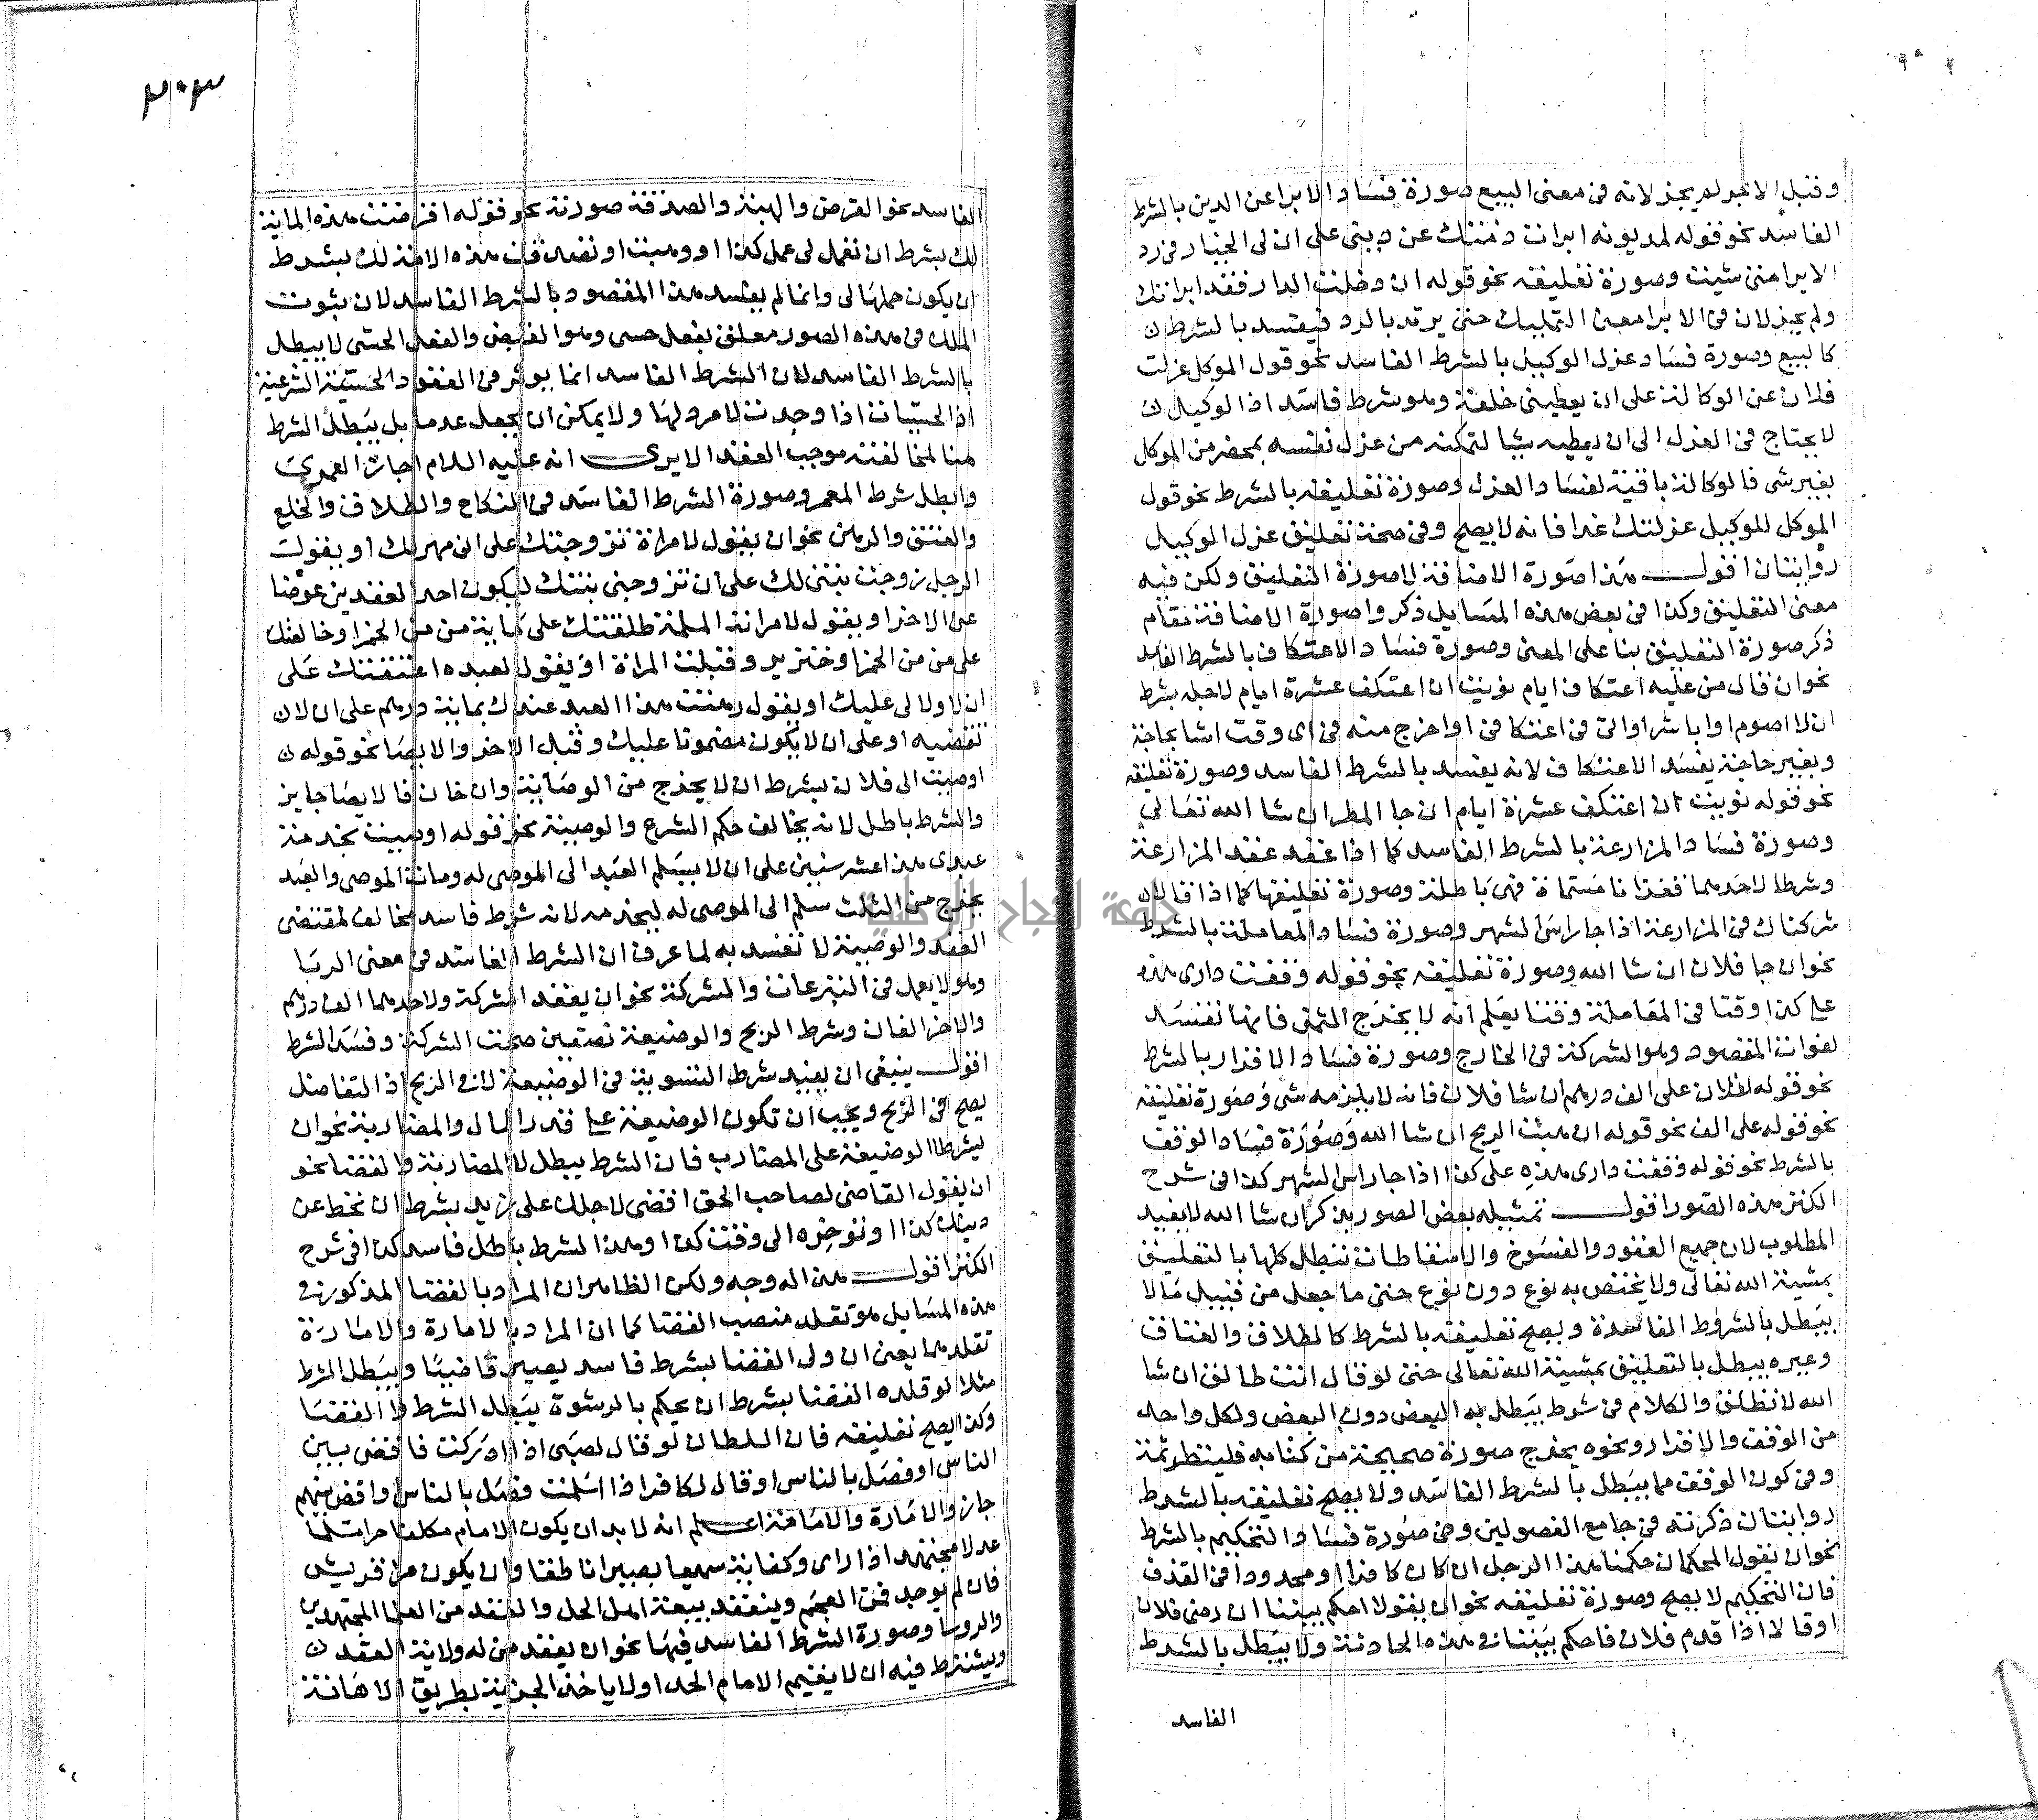 وقبل الاخر لم يجز لانه فى معنى البيع صورة فساد الابرا عن الدين بالشرط
الفاسد نحو قوله لمديونه ابرات ذمتك عن دينى على ان لى الخيار فى رد
الابرا متى شيت وصورة تعليقه نحو قوله ان دخلت الدار فقد ابراتك
ولم يجز لان فى الابرا معنى التمليك حتى يرتد بالرد فيفسد بالشرط
كالبيع وصورة فساد عزل الوكيل بالشرط الفاسد نحو قول الموكل عزلت
فلان عن الوكالة على ان يعطينى خلعة وهو شرط فاسد اذ الوكيل
لا يحتاج فى العزل الى ان يعطيه شيا لتمكنه من عزل نفسه بمحضر من الموكل
بغير شى فالوكالة باقية لفساد العزل وصورة تعليقه بالشرط نحو قول
الموكل للموكيل عزلتك غدا فانه لا يصح وفى صحة تعليق عزل الوكيل
روايتان اقول هذا صورة الاضافة لا صورة التعليق ولكن فيه
معنى التعليق وكذا فى بعض هذه المسايل ذكروا صورة الاضافة مقام
ذكر صورة التعليق بنا على المعنى وصورة فساد الاعتكاف بالشرط الفاسد
نحو ان قال من عليه اعتكاف ايام نويت ان اعتكف عشرة ايام لاجله بشرط
ان لا اصوم او اباشر امراتى فى اعتكافى او اخرج منه فى اى وقت اشا بحاجة
وبغير حاجة يفسد الاعتكاف لانه يفسد بالشرط الفاسد وصورة تعليقه
نحو قوله نويت ان اعتكف عشرة ايام ان جا المطر ان شا الله تعالى
وصورة فساد المزارعة بالشرط الفاسد كما اذا عقد عقد المزارعة
وشرطا لاحدهما قفزانا مسماة فهى باطلة وصورة تعليقها كما اذا قال ان
شركناك فى المزارعة اذا جا راس الشهر وصورة فساد المعاملة بالشرط
نحو ان جا فلان ان شا الله وصورة تعليقه نحو قوله وقفت دارى هذه
على كذا وقتا فى المعاملة وقتا يعلم انه لا يخرج الثمر فانها تفسد
لفوات المقصود وهو الشركة فى الخارج وصورة فساد الاقرار بالشرط
نحو قوله لفلان على الف درهم ان شا فلان فانه لا يلزمه شى وصورة تعليقه
نحو قوله على الف نحو قوله ان هبت الريح ان شا الله وصورة فساد الوقف
بالشرط نحو قوله وقفت دارى هذه على كذا اذا جا راس الشهر كذا فى شرح
الكنز هذه الصور اقول تمثيله بعض الصور بذكر ان شا الله لا يفيد
المطلوب لان جميع العقود والفسوخ والاسقاطات تبطل كلها بالتعليق
بمشية الله تعالى ولا يختص به نوع دون نوع حتى ما جعل من قبيل مالا
يبطل بالشروط الفاسدة ويصح تعليقه بالشرط كالطلاق والعتاق
وغيره يبطل بالتعليق بمشية الله تعالى حتى لو قال انت طالق ان شا
الله لا تطلق والكلام فى شرط يبطل به البعض دون البعض ولكل واحد
من الوقف والاقرار ونحوه يخرج صورة صحيحة من كتابه فلينظر ثمة
وفى كون الوقف مما يبطل بالشرط الفاسد ولا يصح تعليقه بالشرط
روايتان ذكرته فى جامع الفصولين وفى صورة فساد التحكيم بالشرط
نحو ان يقول المحكمان حكمنا هذا الرجل ان كان كافرا او محدودا فى القذف
فان التحكيم لا يصح وصورة تعليقه نحو ان يقولا احكم بيننا ان رضى فلان
او قالا اذا قدم فلان فاحكم بيننا فى هذه الحادثة ولا يبطل بالشرط
الفاسد
٢٠٣
الفاسد نحو القرض والهبة والصدقة صورته نحو قوله اقرضت هذه الماية
لك بشرط ان تعمل لى عمل كذا او وهبت او تصدقت هذه الامة لك بشرط
ان يكون حملها لى وانما لم يفسد هذا المقصود بالشرط الفاسد لان ثبوت
الملك فى هذه الصور معلق بفعل حسى وهو القبض والفعل الحسى لا يبطل
بالشرط الفاسد لان الشرط الفاسد انما يوثر فى العقود الشرعية
اذ الحسيات اذا وجدت لا مرد لها ولا يمكن ان يجعل عدما بل يبطل الشرط
هنا لمخالفته موجب العقد الا يرى انه عليه السلام اجاز العمرى
وابطل شرط المعمر وصورة الشرط الفاسد فى النكاح والطلاق والخلع
والعتق والرهن نحو ان يقول لامراة تزوجتك على ان مهر لك او يقول
الرجل زوجت بنتى لك على ان تزوجنى بنتك ليكون احد العقدين عوضا
عن الاخر او يقول لامراته المسلمة طلقتك على ماية من من الخمر او خالعتك
على من من الخمر او خنزير وقبلت المراة او يقول لعبده اعتقتك على
ان لا ولا لى عليك او يقول رهنت هذا العبد عندك بماية درهم على ان لان
تقضيه او على ان لا يكون مضمونا عليك وقبل الاخر والايصا نحو قوله
اوصيت الى فلان بشرط ان لا يخرج من الوصاية وان خان فالايصا جايز
والشرط باطل لانه يخالف حكم الشرع والوصية نحو قوله اوصيت بخدمة
عبدى هذا عشر سنين على ان لا يسلم العبد الى الموصى له ومات الموصى والعبد
يخرج من الثلث سلم الى الموصى له ليخدمه لانه شرط فاسد مخالف لمقتضى
العقد والوصية لا تفسد به لما عرف ان الشرط الفاسد فى معنى الربا
وهو لا يعمل فى التبرعات والشركة نحو ان يعقد الشركة ولاحدهما الف درهم
والاخر الفان وشرط الربح والوضيعة نصفين صحت الشركة وفسد الشرط
اقول ينبغى ان يفيد شرط التسوية فى الوضيعة لا فى الربح اذ التفاضل
يصح فى الربح ويجب ان تكون الوضيعة على قدر المال والمضاربة نحو ان
يشرطا الوضيعة على المضارب فان الشرط يبطل لا المضاربة والقضا نحو
ان يقول القاضى لصاحب الحق اقضى لاجلك على زيد بشرط ان تحط عن
دينك كذا او توخره الى وقت كذا وهذا الشرط باطل فاسد كذا فى شرح
الكنز اقول هذا له وجه ولكن الظاهر ان المراد بالقضا المذكور فى
هذه المسايل هو تقلد منصب القضا كما ان المراد بالامارة والامارة
تقلدهما يعنى ان ولى القضا بشرط فاسد يصير قاضيا ويبطل الشرط
مثلا لو قلده القضا بشرط ان يحكم بالرشوة يبطل الشرط لا القضا
وكذا يصح تعليقه فان السلطان لو قال لصبى اذا ادركت فاقضى بين
الناس او فصل بالناس او قال لكافر اذا اسلمت فصل بالناس واقض بينهم
جاز والامارة والامامة اعلم انه لا بد ان يكون الامام مكلفا حرا مسلما
عدلا مجتهدا ذا راى وكفاية سميعا بصيرا ناطقا وان يكون من قريش
فان لم يوجد فمن العجم وينعقد ببيعة اهل الحل والعقد من العلما المجتهدين
والروسا وصورة الشرط الفاسد فيها نحو ان يعقد من له ولاية العقد
ويشترط فيه ان لا يقيم الامام الحد او لا ياخذ الجزية بطريق الاهانة
جامعة النجاح الوطنية